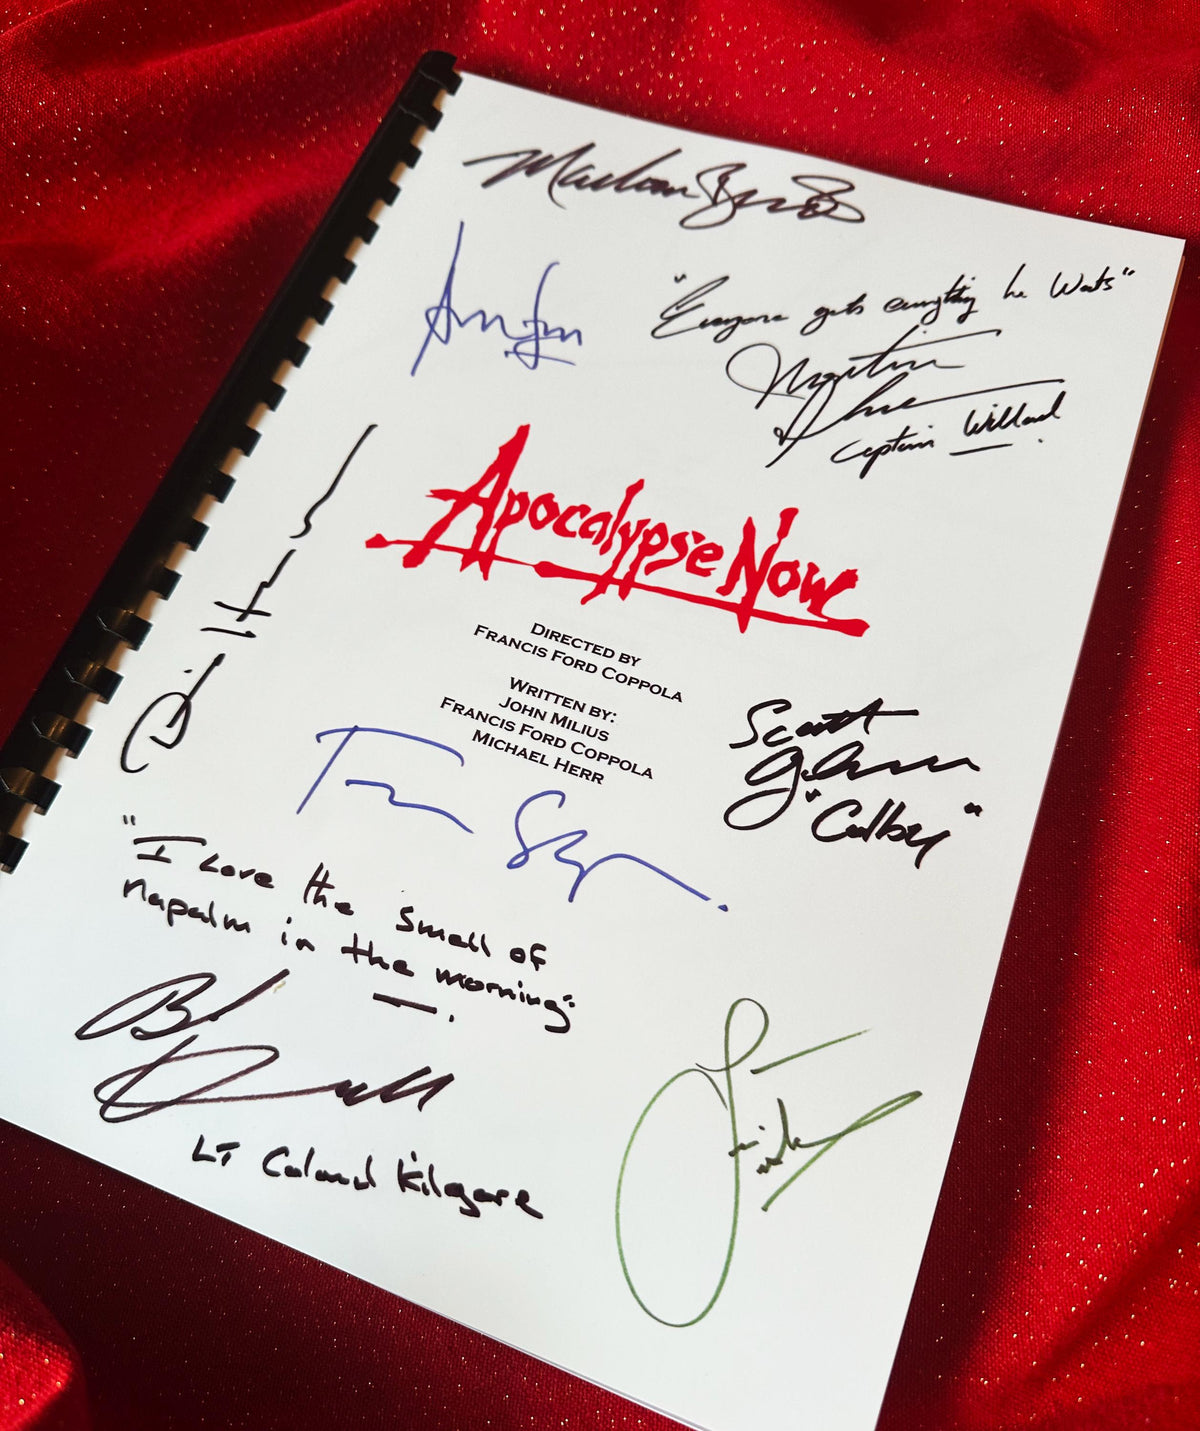 Marlon Brando
"Everyone gets everything he Wants"
Martin
Sheen
Captain Willard
Apocalypse Now
Directed by
Francis Ford Coppola
Written by:
John Milius
Francis Ford Coppola
Michael Herr
Scott
Glenn
"Colby"
"I Love the smell of
napalm in the morning"
Lt Colonel Kilgore